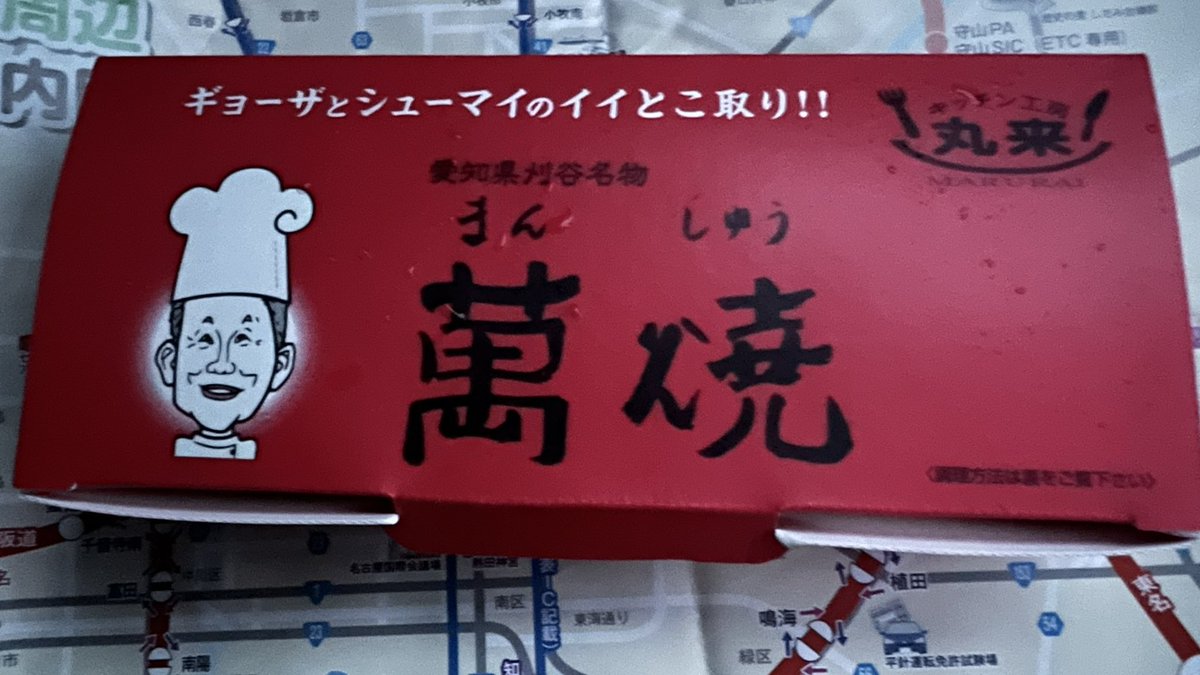 周辺
西春
岩倉市
小牧南
41
守山PA
守山SIC
ETC専用
ギョーザとシューマイのイイとこ取り!!
キッチン工房
丸来
MARURAI
愛知県刈谷名物
まん しゅう
萬焼
〈調理方法は裏をご覧下さい〉
千音寺南
富田
中川区
名古屋国際会議場
熱田神宮
南区
東海通り
1
23
南陽
植田
153
鳴海
緑区
54
平針運転免許試験場
東名